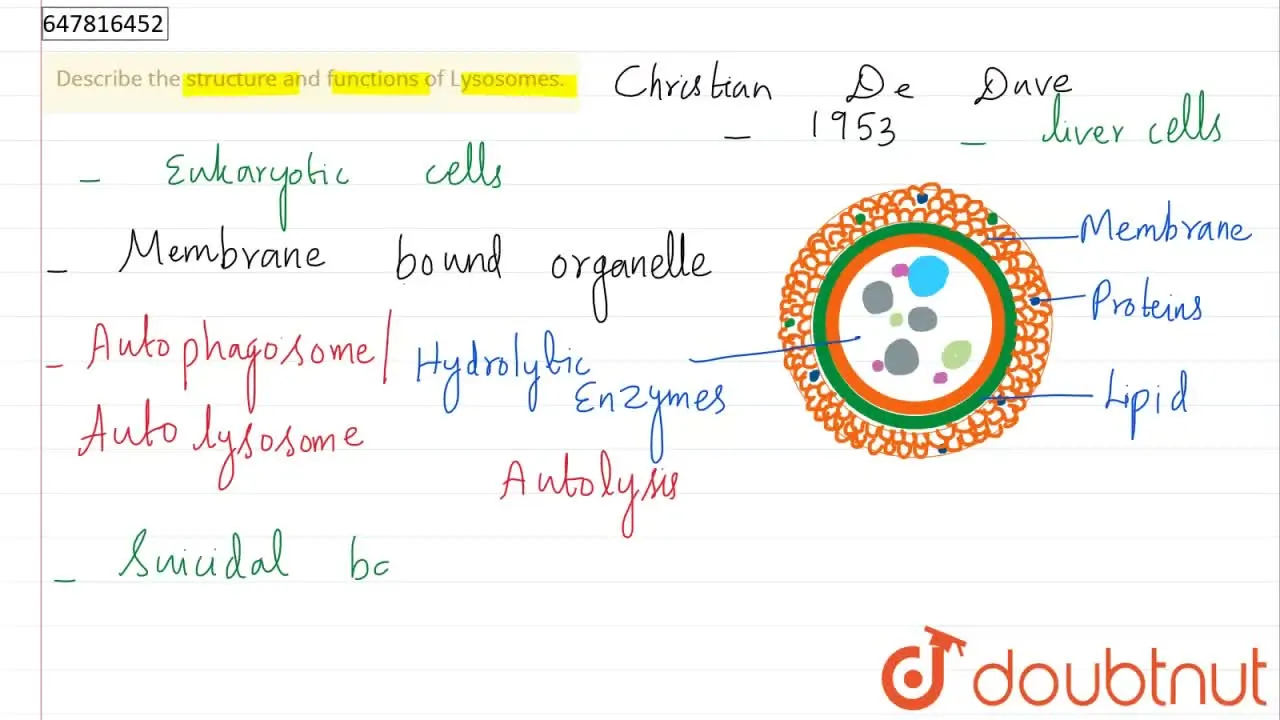 647816452
Describe the structure and functions of Lysosomes.
Christian De Duve
- 1953 - liver cells
- Eukaryotic cells
- Membrane bound organelle
- Autophagosome/
Autolysosome
Hydrolytic
Enzymes
Autolysis
- Suicidal bc
Membrane
Proteins
Lipid
doubtnut